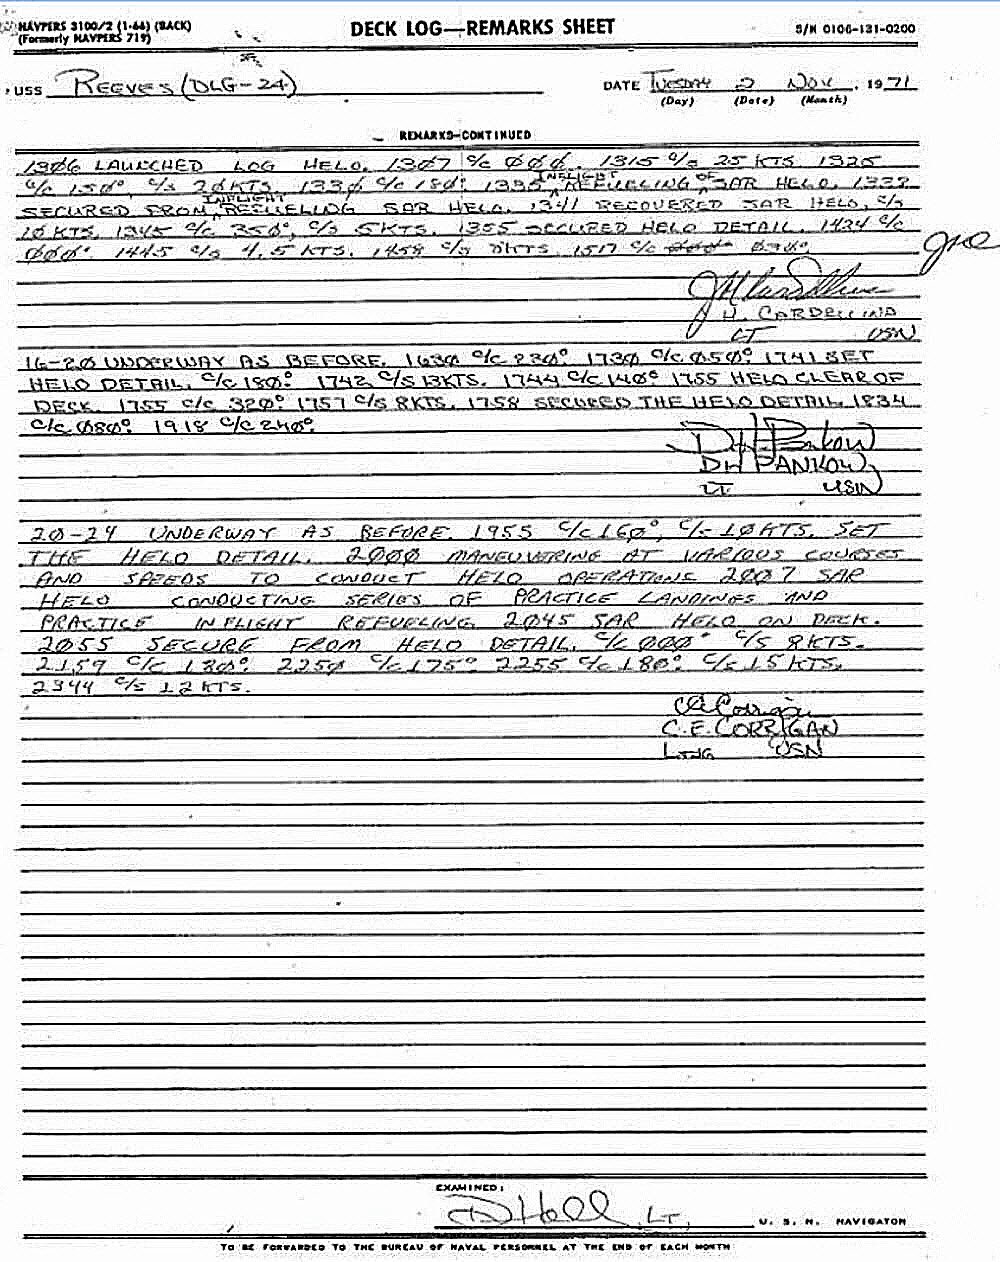 NAVPERS 3100/2 (1-66) (BACK)
(Formerly NAVPERS 719)
DECK LOG—REMARKS SHEET
S/N 0106-131-0200
USS REEVES (DLG-24)
DATE TUESDAY 2 NOV, 1971
(Day) (Date) (Month)
REMARKS—CONTINUED
1306 LAUNCHED LOG HELO. 1307 C/C 000. 1315 C/S 25 KTS. 1325
C/C 150°, C/S 20 KTS. 1330 C/C 180°. 1335 INFLIGHT REFUELING OF SAR HELO.
SECURED FROM INFLIGHT REFUELING SAR HELO. 1341 RECOVERED SAR HELO, C/S
10 KTS. 1345 C/C 350°, C/S 5 KTS. 1355 SECURED HELO DETAIL. 1434 C/C
000°. 1445 C/S 4.5 KTS. 1458 C/S KTS. 1517 C/C
J H. CARDELLINO
LT USN
16-20 UNDERWAY AS BEFORE. 1630 C/C 230° 1730 C/C 050°. 1741 SET
HELO DETAIL. C/C 180°. 1742 C/S 13KTS. 1744 C/C 140° 1755 HELO CLEAR OF
DECK. 1755 C/C 320°. 1757 C/S 8KTS. 1758 SECURED THE HELO DETAIL. 1834
C/C 080°. 1918 C/C 240°.
DH Pankow
DH PANKOW
LT USN
20-24 UNDERWAY AS BEFORE. 1955 C/C 160°, C/S 10 KTS. SET
THE HELO DETAIL. 2000 MANEUVERING AT VARIOUS COURSES
AND SPEEDS TO CONDUCT HELO OPERATIONS 2007 SAR
HELO CONDUCTING SERIES OF PRACTICE LANDINGS AND
PRACTICE INFLIGHT REFUELING. 2045 SAR HELO ON DECK.
2055 SECURE FROM HELO DETAIL. C/C 000° C/S 8 KTS.
2159 C/C 180°. 2250 C/C 175° 2255 C/C 180°. C/S 15 KTS.
2344 C/S 12 KTS.
CE Corrigan
C.E. CORRIGAN
LTJG USN
EXAMINED:
D Hall, LT, U. S. N. NAVIGATOR
TO BE FORWARDED TO THE BUREAU OF NAVAL PERSONNEL AT THE END OF EACH MONTH